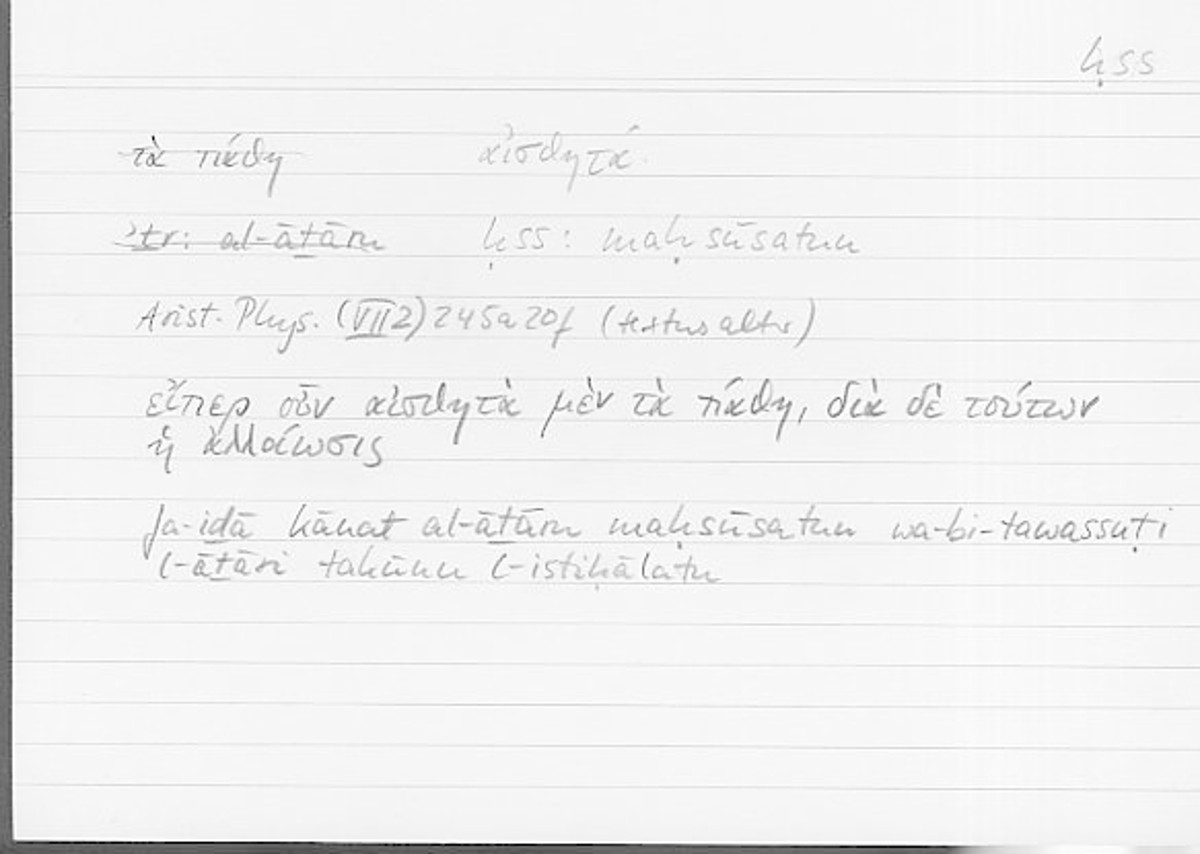 ḥss
τὰ πάθη αἰσθητά.
ʾṯr: al-āṯāru ḥss: maḥsūsatun
Arist. Phys. (VII 2) 245a20f (textus alter)
εἴπερ οὖν αἰσθητὰ μὲν τὰ πάθη, διὰ δὲ τούτων
ἡ ἀλλοίωσις
fa-iḏā kānat al-āṯāru maḥsūsatun wa-bi-tawassuṭi
l-āṯāri takūnu l-istiḥālatu